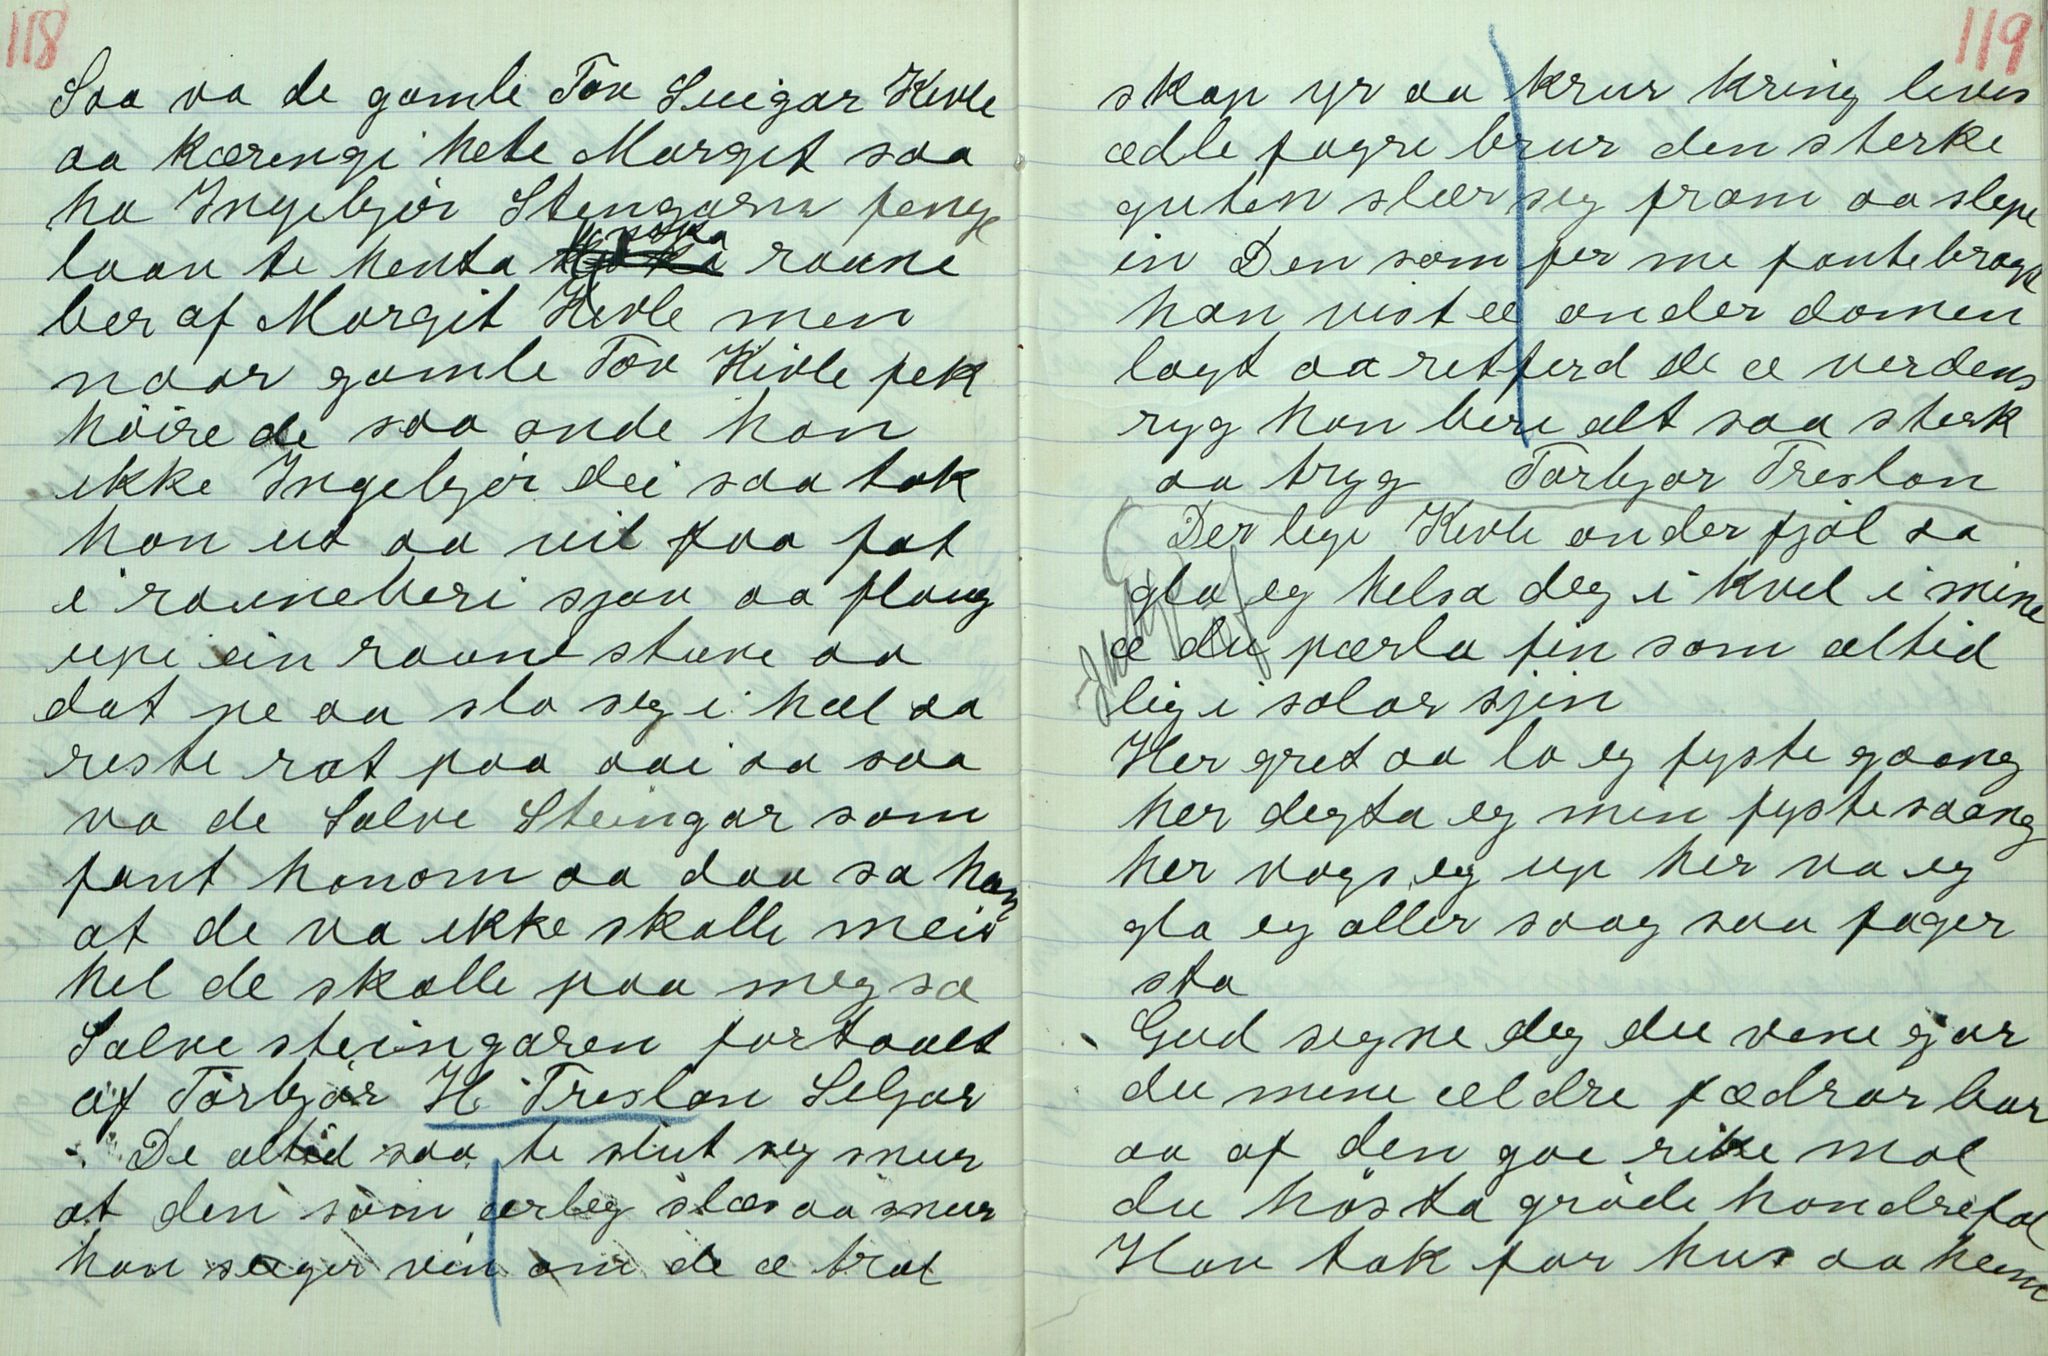 118
Saa va de gamle Tov Seigar Kivle
aa kærengi hete Margit saa
ha Ingebjør Stengarn fenge
laav te henta noka raune
ber af Margit Kivle men
naar gamle Tov Kivle fek
høire de saa onde han
ikke Ingebjør dei saa tok
han ut aa vil faa fat
i rauneberi sjøv aa flaug
upi ein raunestuve aa
dat ne aa slo seg i hæl aa
reste rat paa aai aa saa
va de Salve Steingar som
fant honom aa daa sa han
at de va ikke skalle meir
hel de skalle paa meg sa
Salve steingaren fortaalt
af Torbjør H. Treslan Seljor
De altid saa te slut seg snur
at den som ærleg slær aa snur
han seiger vin om de æ brat
119
skap yr aa krur kring livis
ædle fagre brur den sterke
guten slær seg fram aa slepe
in Den som fer me fantebragd
han vist æ onder domen
lagt aa retferd de æ verdens
ryg han bere alt saa sterk
aa tryg Torbjør Treslan
Der lige Kivle onder fjøl sa
gla eg helsa deg i kvel i mine
æ du pærla fin som altid
lig i solar sjin
Her gret aa lo eg fyste gaang
her degta eg min fyste saang
her vogs eg up her va eg
gla eg aller saag saa fager
sta
Gud segne deg du vene gjor
du mine ældre fædrar bar
aa af den goe rike mol
du høsta grøde hondrefal
Hav tak for hus aa heim